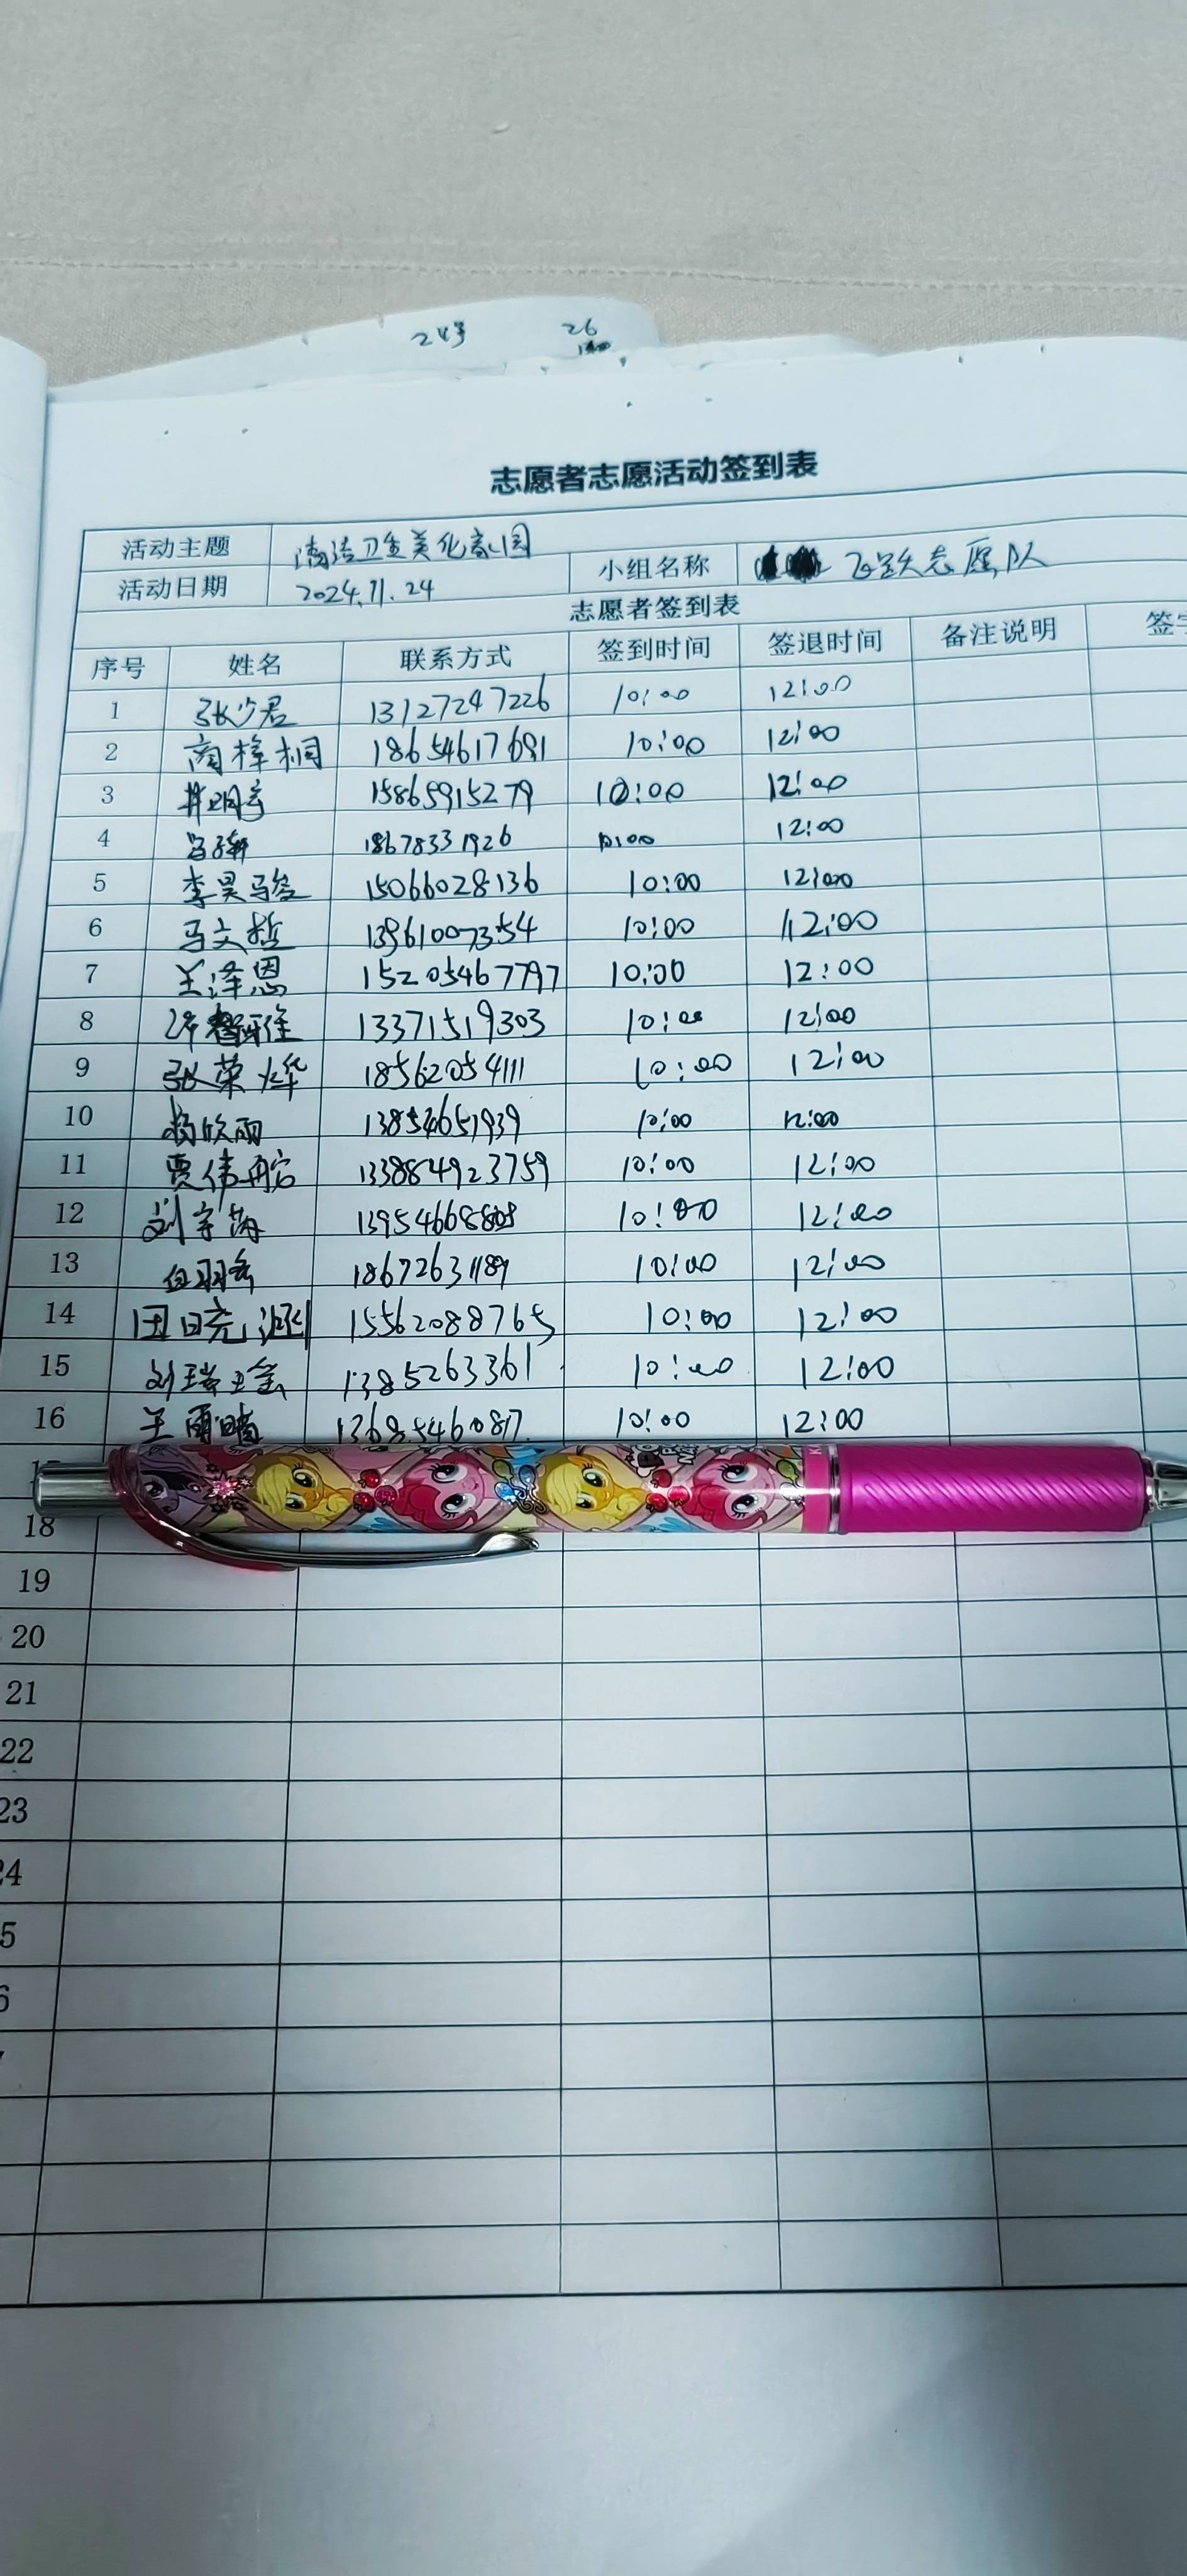 24号 26
志愿者志愿活动签到表
活动主题 清洁卫生美化家园
活动日期 2024.11.24 小组名称 飞跃志愿队
志愿者签到表
序号 姓名 联系方式 签到时间 签退时间 备注说明 签字
1 张少君 13127247226 10:00 12:00
2 商梓桐 18654617691 10:00 12:00
3 15865915279 10:00 12:00
4 18678331926 10:00 12:00
5 李昊骏 15066028136 10:00 12:00
6 马文哲 13961007354 10:00 12:00
7 王泽恩 15205467797 10:00 12:00
8 13371519303 10:00 12:00
9 张荣烨 18562054111 10:00 12:00
10 杨欣雨 13854651939 10:00 12:00
11 贾伟 10:00 12:00
12 刘宇 10:00 12:00
13 白羽 18672631189 10:00 12:00
14 15562088765 10:00 12:00
15 刘瑞 1385263361 10:00 12:00
16 王雨晴 13685460817 10:00 12:00
18
19
20
21
22
23
24
5
6